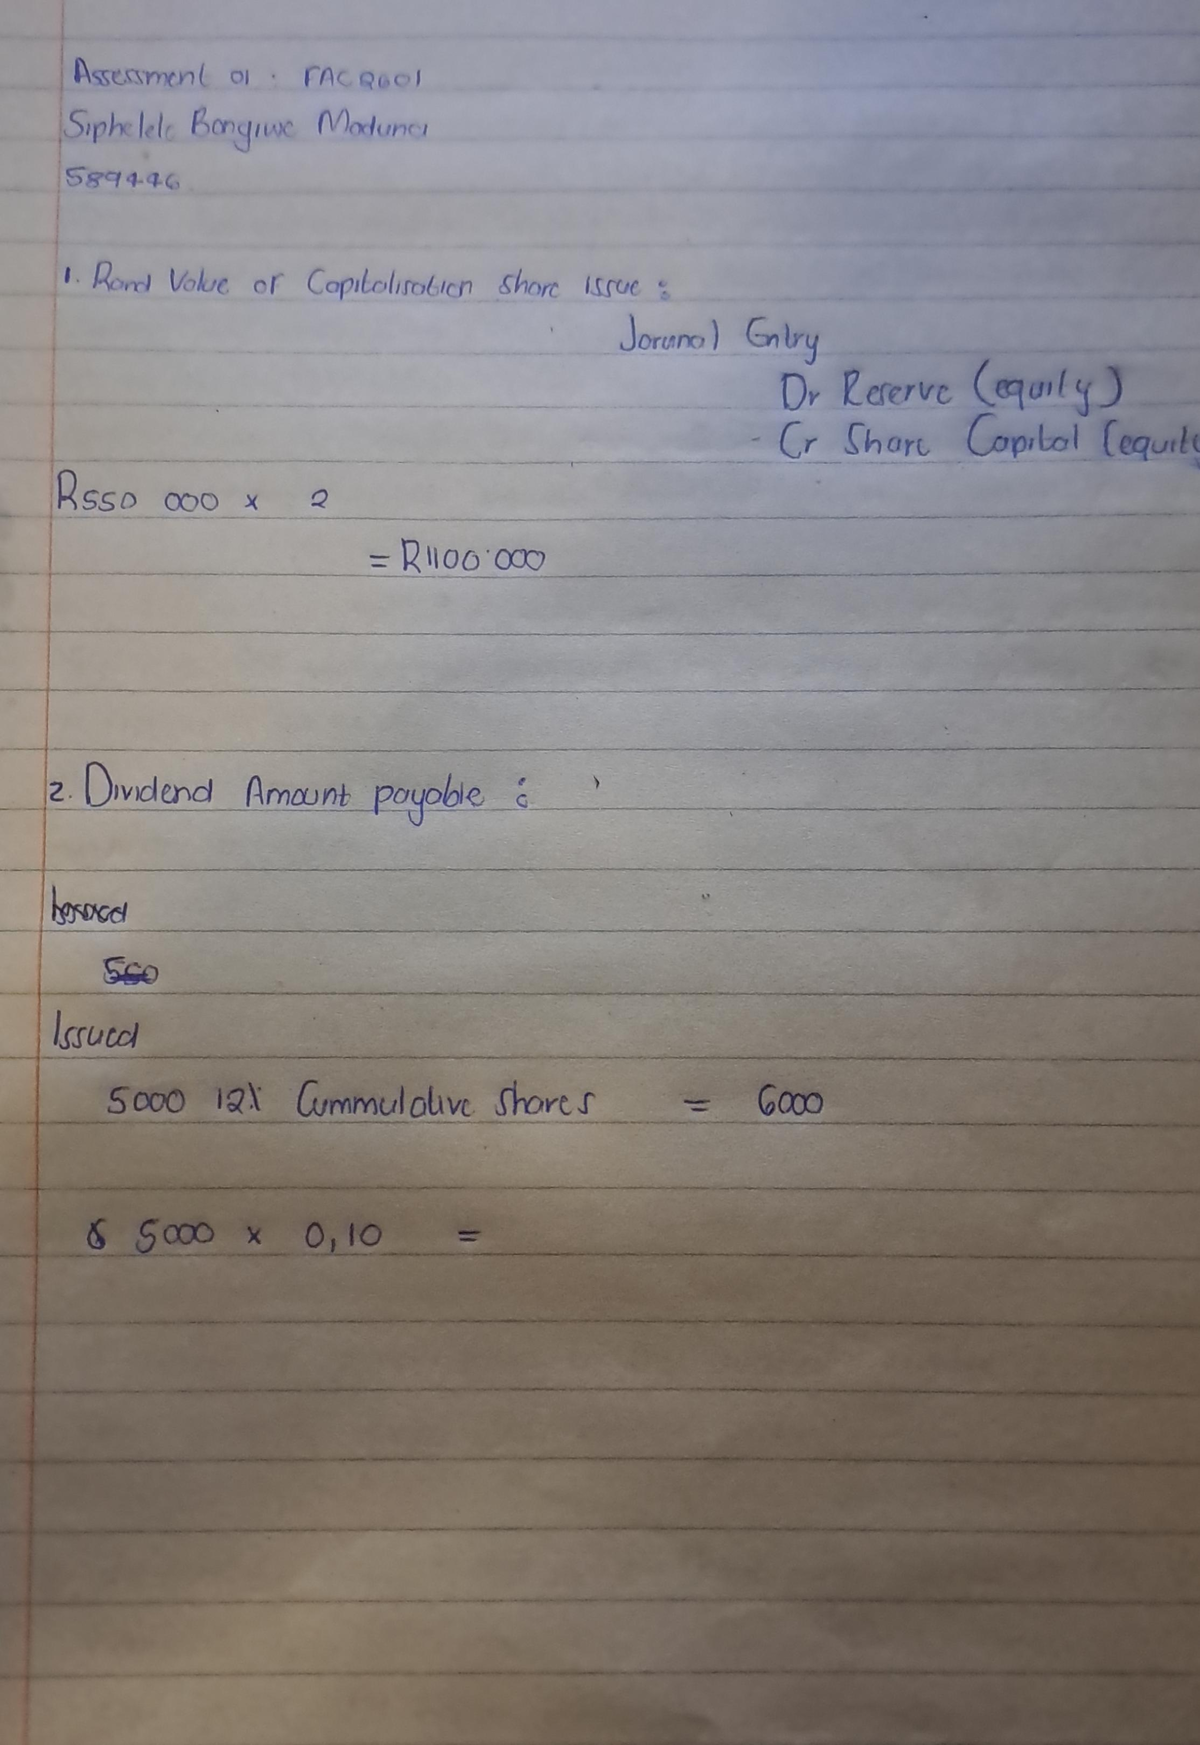 Assessment 01 : FAC2601
Siphelele Bongiwe Maduna
589446
1. Rand Value of Capitalisation share issue :
Jorunal Entry
Dr Reserve (equity)
- Cr Share Capital (equity
R550 000 x 2
= R1100 000
2. Dividend Amount payable :
550
Issued
5000 12% Cummulative Shares = 6000
5000 x 0,10 =